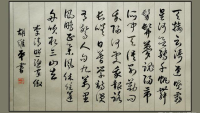 天接云涛连晓雾
星河欲转千帆舞
仿佛梦魂归帝
所闻天语殷勤问我
归何处我报路
长嗟日暮学诗谩
有惊人句九万里
风鹏正举风休住蓬
舟吹取三山去
李清照渔家傲
胡
书